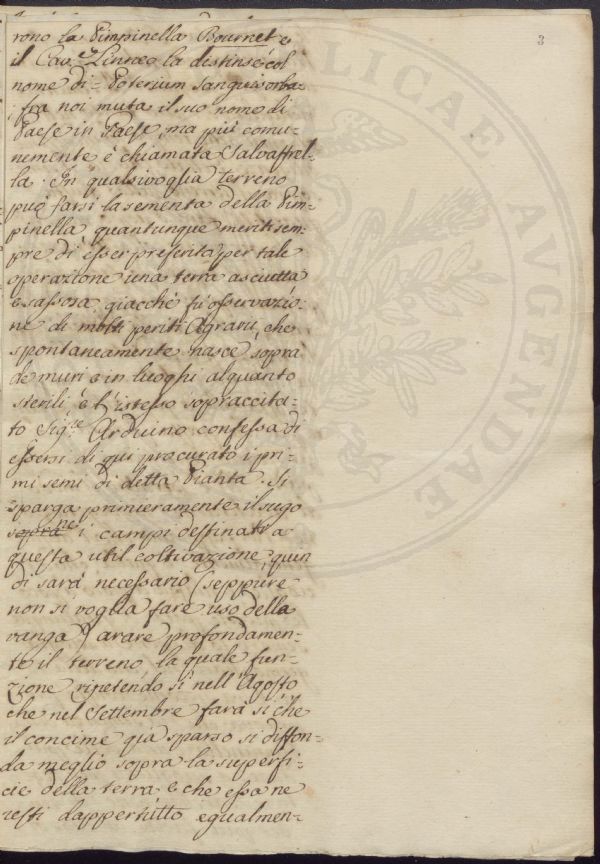 3
rono la Pimpinella Bournet e
il Cav.e Linneo la distinse col
nome di Poterium sanguisorba
fra noi muta il suo nome di
Paese in Paese, ma più comu-
nemente è chiamata Salvastrel-
la. In qualsivoglia terreno
può farsi la sementa della Pim-
pinella quantunque meriti sem-
pre di esser preferita per tale
operazione una terra asciutta
e sassosa, giacchè fu osservazio-
ne di molti periti Agrarii, che
spontaneamente nasce sopra
de muri e in luoghi alquanto
sterili, e l'istesso sopraccita-
to Sig.re Arduino confessa di
essersi di qui procurato i pri-
mi semi di detta Pianta. Si
sparga primieramente il sugo
sopra ne i campi destinati a
questa util coltivazione, quin
di sarà necessario (seppure
non si voglia fare uso della
vanga) arare profondamen-
te il terreno, la quale fun-
zione ripetendosi nell'Agosto
che nel Settembre farà sì che
il concime già sparso si diffon-
da meglio sopra la superfi-
cie della terra e che essa ne
resti dappertutto egualmen-
PUBLICAE AVGENDAE